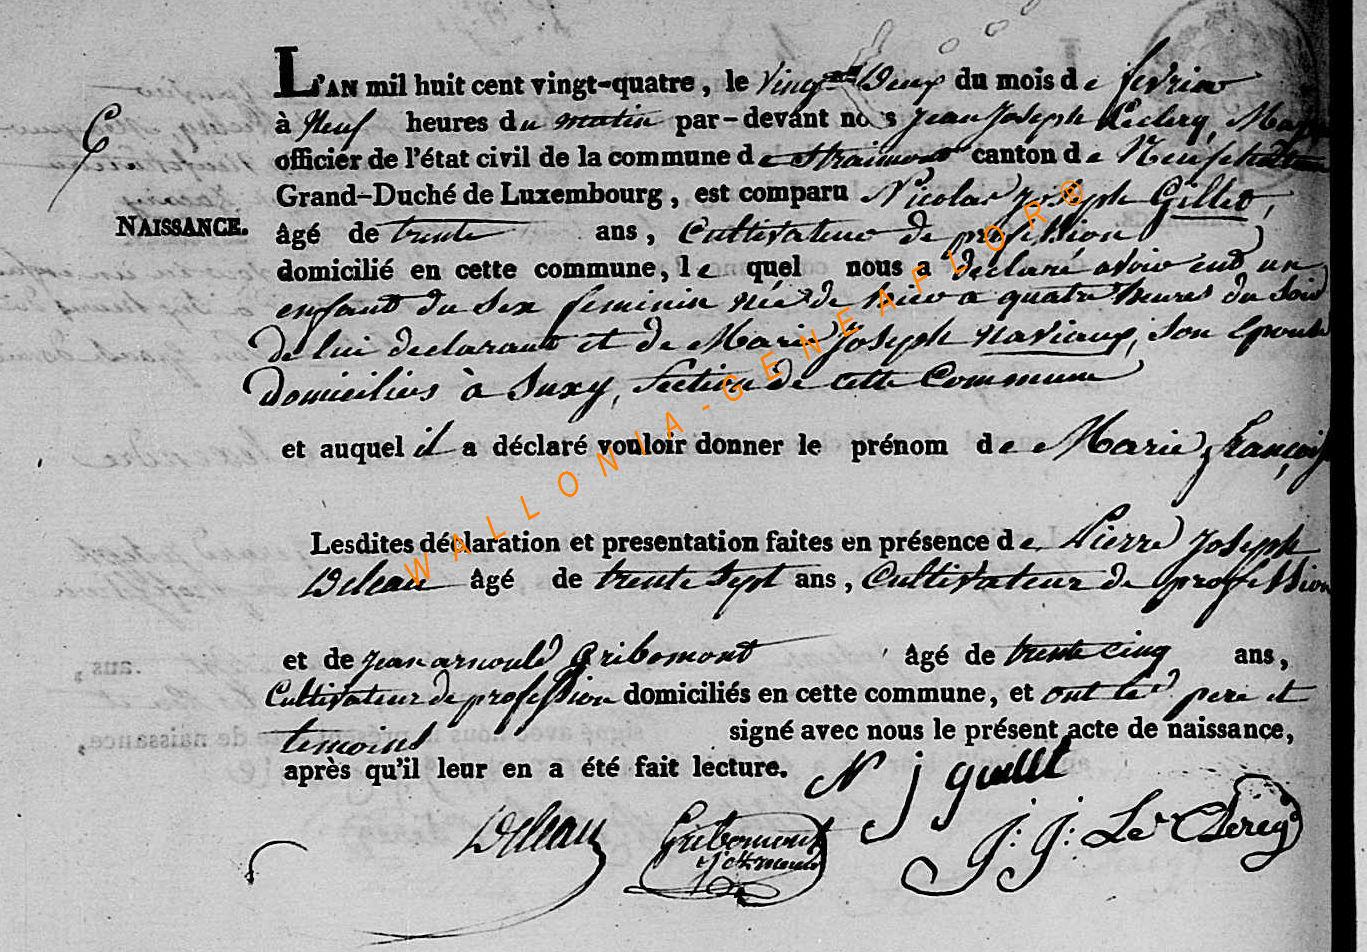 L'AN mil huit cent vingt-quatre, le Vingt Deux du mois de fevrier
à Neuf heures du matin par-devant nous Jean Joseph Leclerq, Mayeur
officier de l'état civil de la commune de Straimont canton de Neufchateau
Grand-Duché de Luxembourg, est comparu Nicolas Joseph Gillet,
NAISSANCE.
âgé de trente ans, Cultivateur de profession
domicilié en cette commune, le quel nous a declaré avoir eut un
enfant du sex feminin née de hier a quatre heures du Soir
de lui declarant et de Marie Joseph Naviaux, Son Epouse
Domiciliés à Suxy, Section de cette Commune
et auquel il a déclaré vouloir donner le prénom de Marie françoise
Lesdites déclaration et presentation faites en présence de Pierre Joseph
Deleau âgé de trente Sept ans, Cultivateur de profession
et de Jean arnould Gribomont âgé de trente cinq ans,
Cultivateur de profession domiciliés en cette commune, et ont les pere et
temoins signé avec nous le présent acte de naissance,
après qu'il leur en a été fait lecture.
N j guillet
Deleau Gribomont J. J. Le Clercq
WALLONIA-GENEAFLORE®